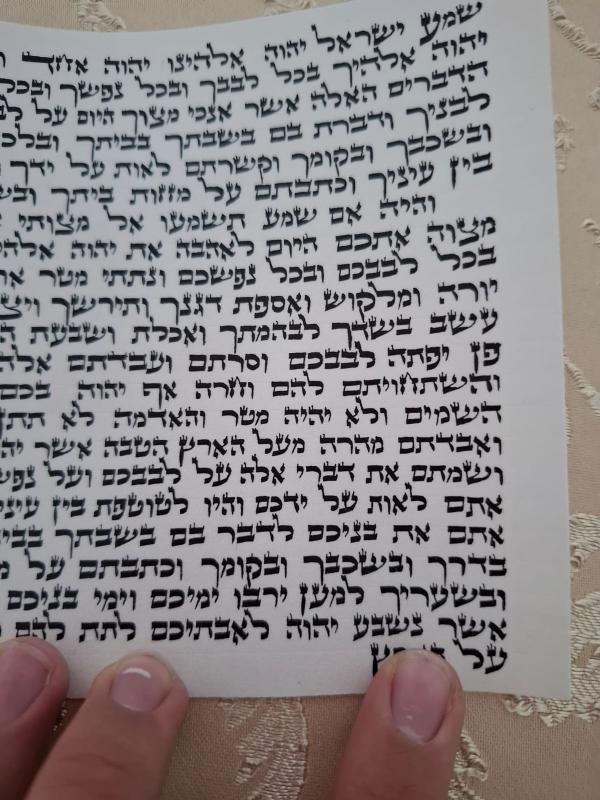 שמע ישראל יהוה אלהינו יהוה אחד
יהוה אלהיך בכל לבבך ובכל נפשך ובכל
הדברים האלה אשר אנכי מצוך היום על
לבניך ודברת בם בשבתך בביתך
ובשכבך ובקומך וקשרתם לאות על ידך
בין עיניך וכתבתם על מזזות ביתך
והיה אם שמע תשמעו אל מצותי
מצוה אתכם היום לאהבה את יהוה
בכל לבבכם ובכל נפשכם ונתתי מטר
יורה ומלקוש ואספת דגנך ותירשך
עשב בשדך לבהמתך ואכלת ושבעת
פן יפתה לבבכם וסרתם ועבדתם
והשתחויתם להם וחרה אף יהוה בכם
השמים ולא יהיה מטר והאדמה לא תתן
ואבדתם מהרה מעל הארץ הטבה אשר
ושמתם את דברי אלה על לבבכם ועל
אתם לאות על ידכם והיו לטוטפת בין
אתם את בניכם לדבר בם בשבתך
בדרך ובשכבך ובקומך וכתבתם על
ובשעריך למען ירבו ימיכם וימי בניכם
אשר נשבע יהוה לאבתיכם לתת להם
על